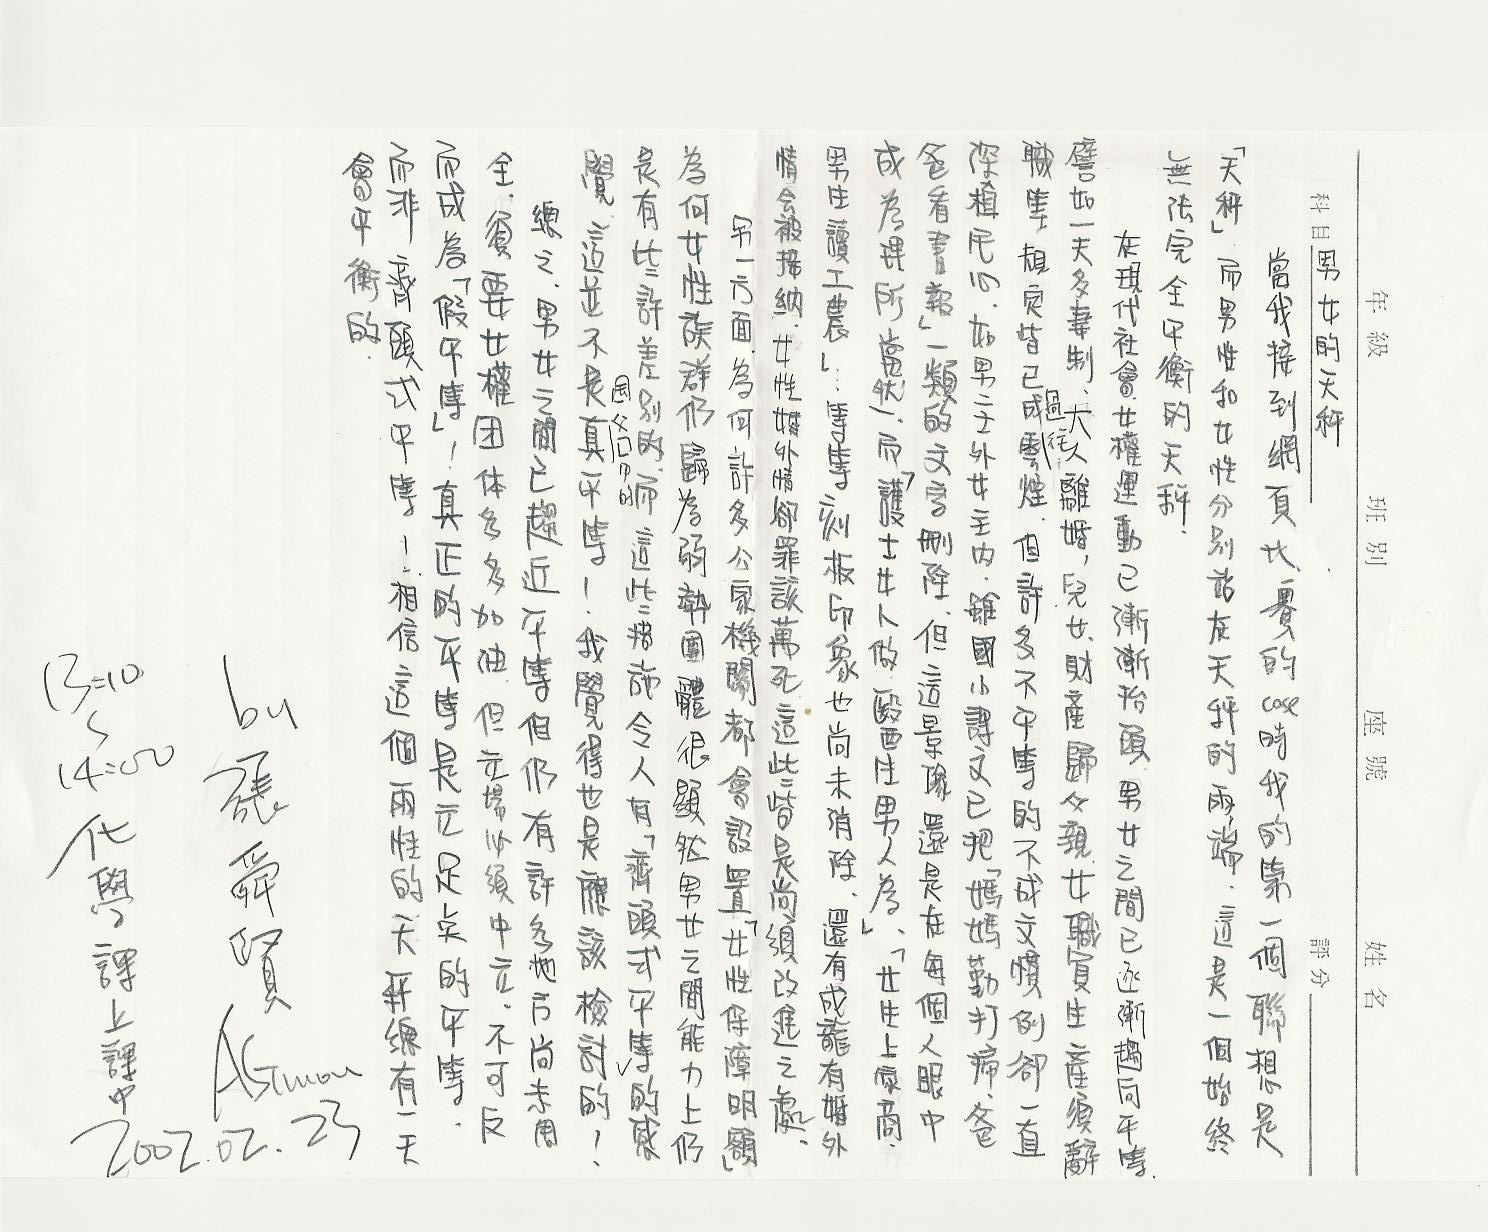 年級 班別 座號 姓名
科目 男女的天秤 評分
當我接到網頁比賽的case時我的第一個聯想是
「天秤」而男性和女性分別站在天秤的兩端．這是一個始終
無法完全平衡的天秤．
在現代社會女權運動已漸漸抬頭．男女之間已逐漸趨向平等．
譬如一夫多妻制、夫人離婚，兒女、財產歸父親、女職員生產須辭
職等，規定皆已成過往雲煙．但許多不平等的不成文慣例卻一直
深植民心．如男主外女主內．雖國小課文已把「媽媽勤打掃、爸
爸看書報」一類的文字刪除．但這景像還是在每個人眼中
成為理所當然、而「護士女人做 醫生男人為」、「女生上家商．
男生讀工農」…等等刻板印象也尚未消除、還有成龍有婚外
情会被接納．女性婚外情卻罪該萬死 這些皆是尚須改進之處．
另一方面．為何許多公家機關都會設置「女性保障明額」
為何女性族群仍歸為弱勢團體很顯然男女之間能力上仍
是有些許差別的．而這些措施令人有「齊頭式平等」的感
覺．這並不是國父口中的真平等！．我覺得也是應該檢討的！
總之．男女之間已趨近平等但仍有許多地方尚未周
全．須要女權团体多多加油．但立場必須中立．不可反
而成為「假平等」！真正的平等是立足点的平等．
而非齊頭式平等！．相信這個兩性的天秤總有一天
會平衡的．
by 張舜賢
2002.02.23
13:10
14:00 化學課上課中